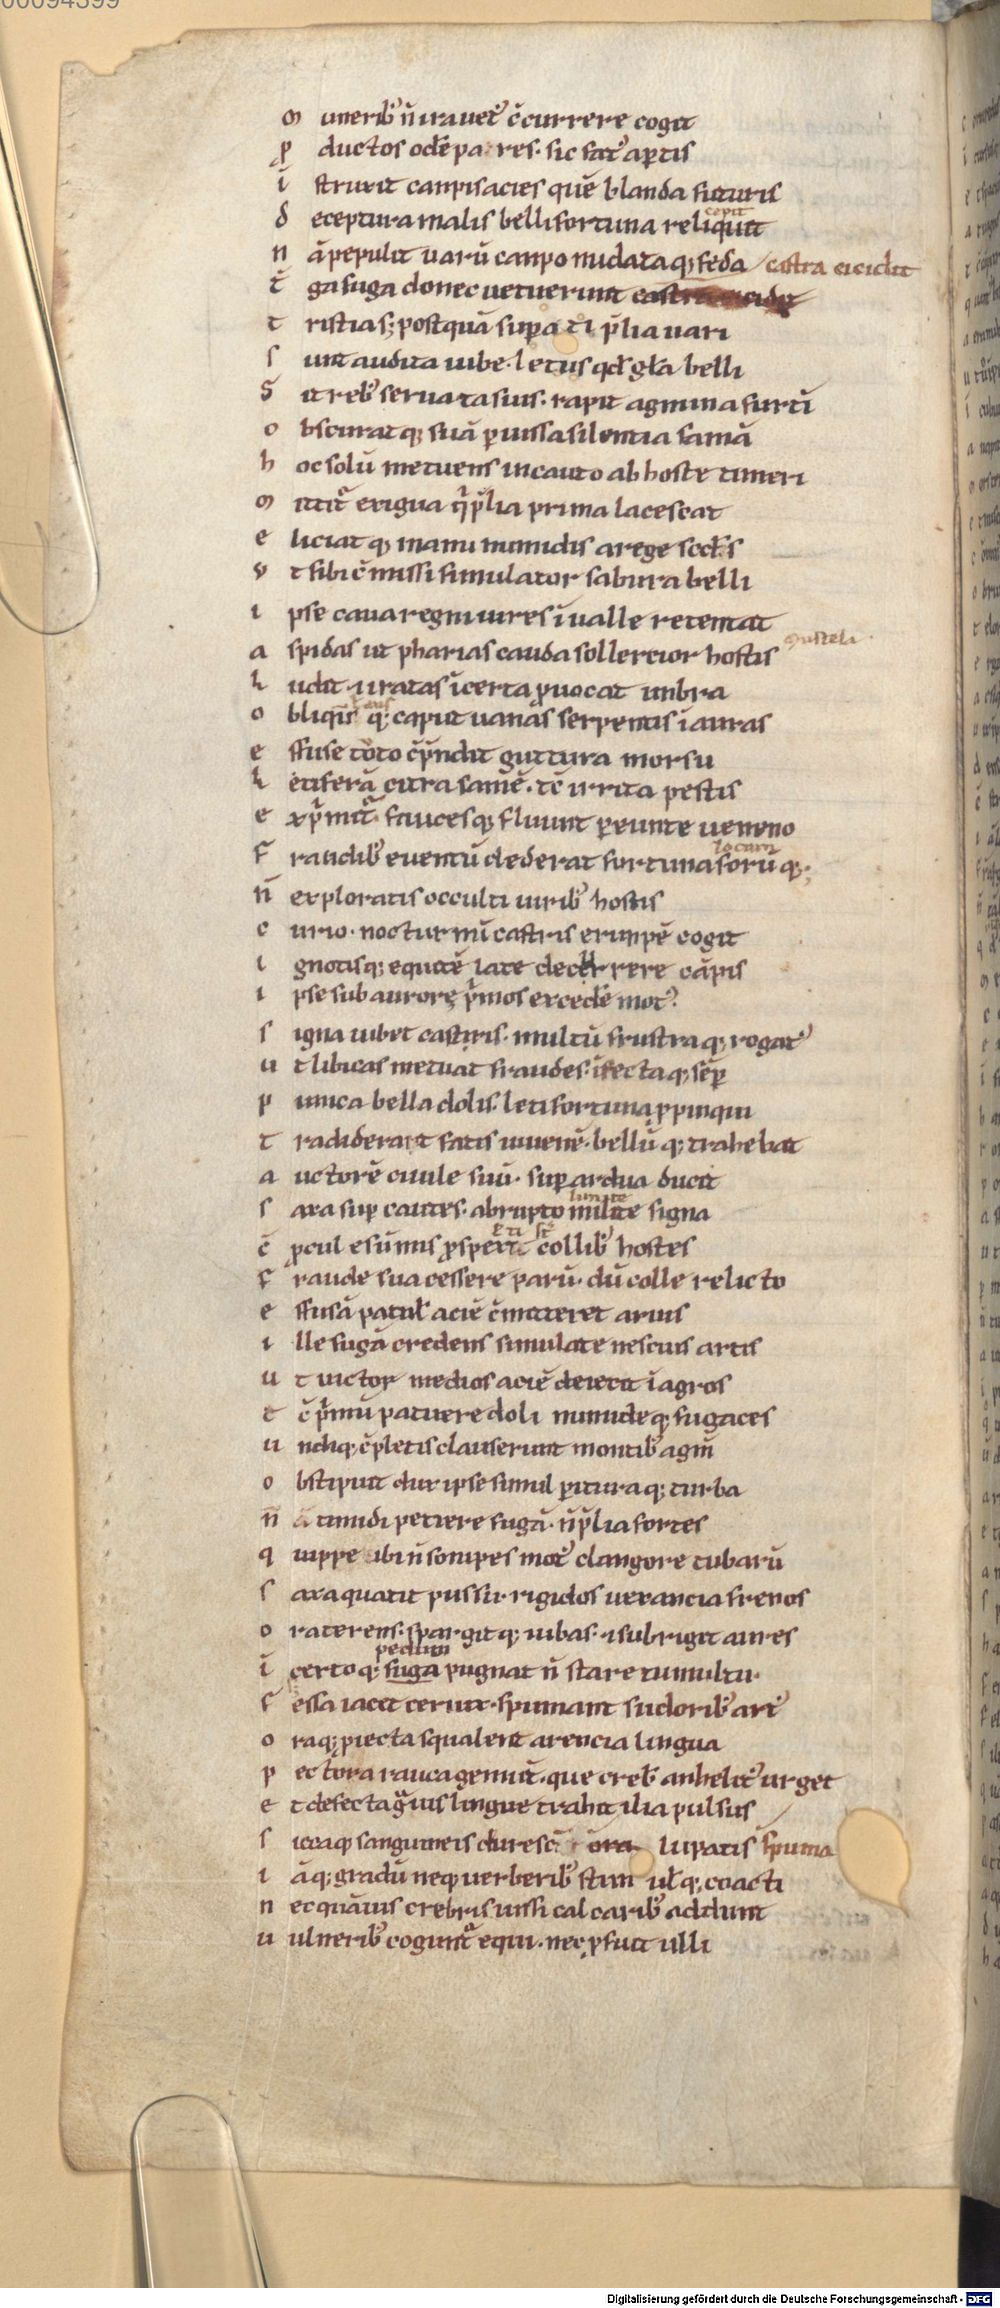 00094399
m unerib' n̄ irauer̄ c̄currere cogit
p ductos odēpa res. sic fat' ap̱tis
ī struxit canpisacies quē blanda futuris
d eceptura malis belli fortuna reliquit
cepit
n āpepulit uarū campo nudataq; feda castra cicidit
t̄ ga fuga donec uetuerunt castra
t ristia s; postquā sup̱ati p̄lia uari
s unt audita iube. letus qd' gl'a belli
s̄ it reb' seruata suis. rapit agmina furti
o bscuratq; suā p̱ iussa silentia famā
h oc solū metuens incauto ab hoste timeri
m ittit' exigua q̄ p̄lia prima lacescat
e liciat q; manu numidis a rege sc̄ds
v t sibi c̄missi simulator sabura belli
i pse caua regni uires ī ualle retentat
a spidas ut pharias cauda sollercior hostis mustela
l udit. iratas īcerta p̱uocat unbra
o bliqs q; caput uanas serpentis ī auras
e ffuse toto c̄p̄ndit guttura morsu
l etiferā citra saniē. tc̄ irrita pestis
e xp̄mit' faucesq; fluunt p̱eunte ueneno
f raudib' euentū dederat fortuna forū q;
locum
n̄ exploratis occulti uirib' hostis
c urio. nocturnū castris erunpē cogit
i gnotisq; equitē late decurrere cāpis
i pse sub aurore p̄mos excedē mot'
s igna iubet castris. multū frustraq; rogat'
u t libicas metuat fraudes. īfectaq; sēp̱
p unica bella dolis. leti fortuna p̱pinqui
t radiderat fatis iuuenē. bellū q; trahebat
a uctorē ciuile suū. sup̱ ardua ducit
s axa sup̱ cautes. abrupto milite signa
limite
c̄ p̱cul e sūmis p̱spect collib' hostes
f raude sua cessere parū. dū colle relicto
e ffusā patul' aciē c̄mitteret aruis
i lle fugā credens simulate nescius artis
u t uictor medios aciē deiecit ī agros
t c̄ p̄mū patuere doli numideq; fugaces
u ndiq; c̄pletis clauserunt montib' agm̄
o bstipuit dux ipse simul p̱ituraq; turba
n̄ a timidi petiere fugā. n̄ p̄lia fortes
q uippe ubi n̄ sonipes mot' clangore tubarū
s axa quatit pulsu. rigidos uexancia frenos
o ra terens. spargitq; iubas. 7 subriget aures
pedum
ī certo q; fuga pugnat n̄ stare tumultu.
f essa iacet ceruix. spumant sudorib' art'
o raq; p̱iecta squalent arencia lingua
p ectora rauca gemunt. que creb' anhelit' urget
e t defecta g̊uis lingue trahit ilia pulsus
s iccaq; sanguineis durescit ora lupatis spuma
i āq; gradū neq; uerberib' stimul'q; coacti
n ec quāuis crebris iussi calcarib' addunt
u ulnerib' cogunt' equi. nec p̱fuit ulli
Digitalisierung gefördert durch die Deutsche Forschungsgemeinschaft - DFG